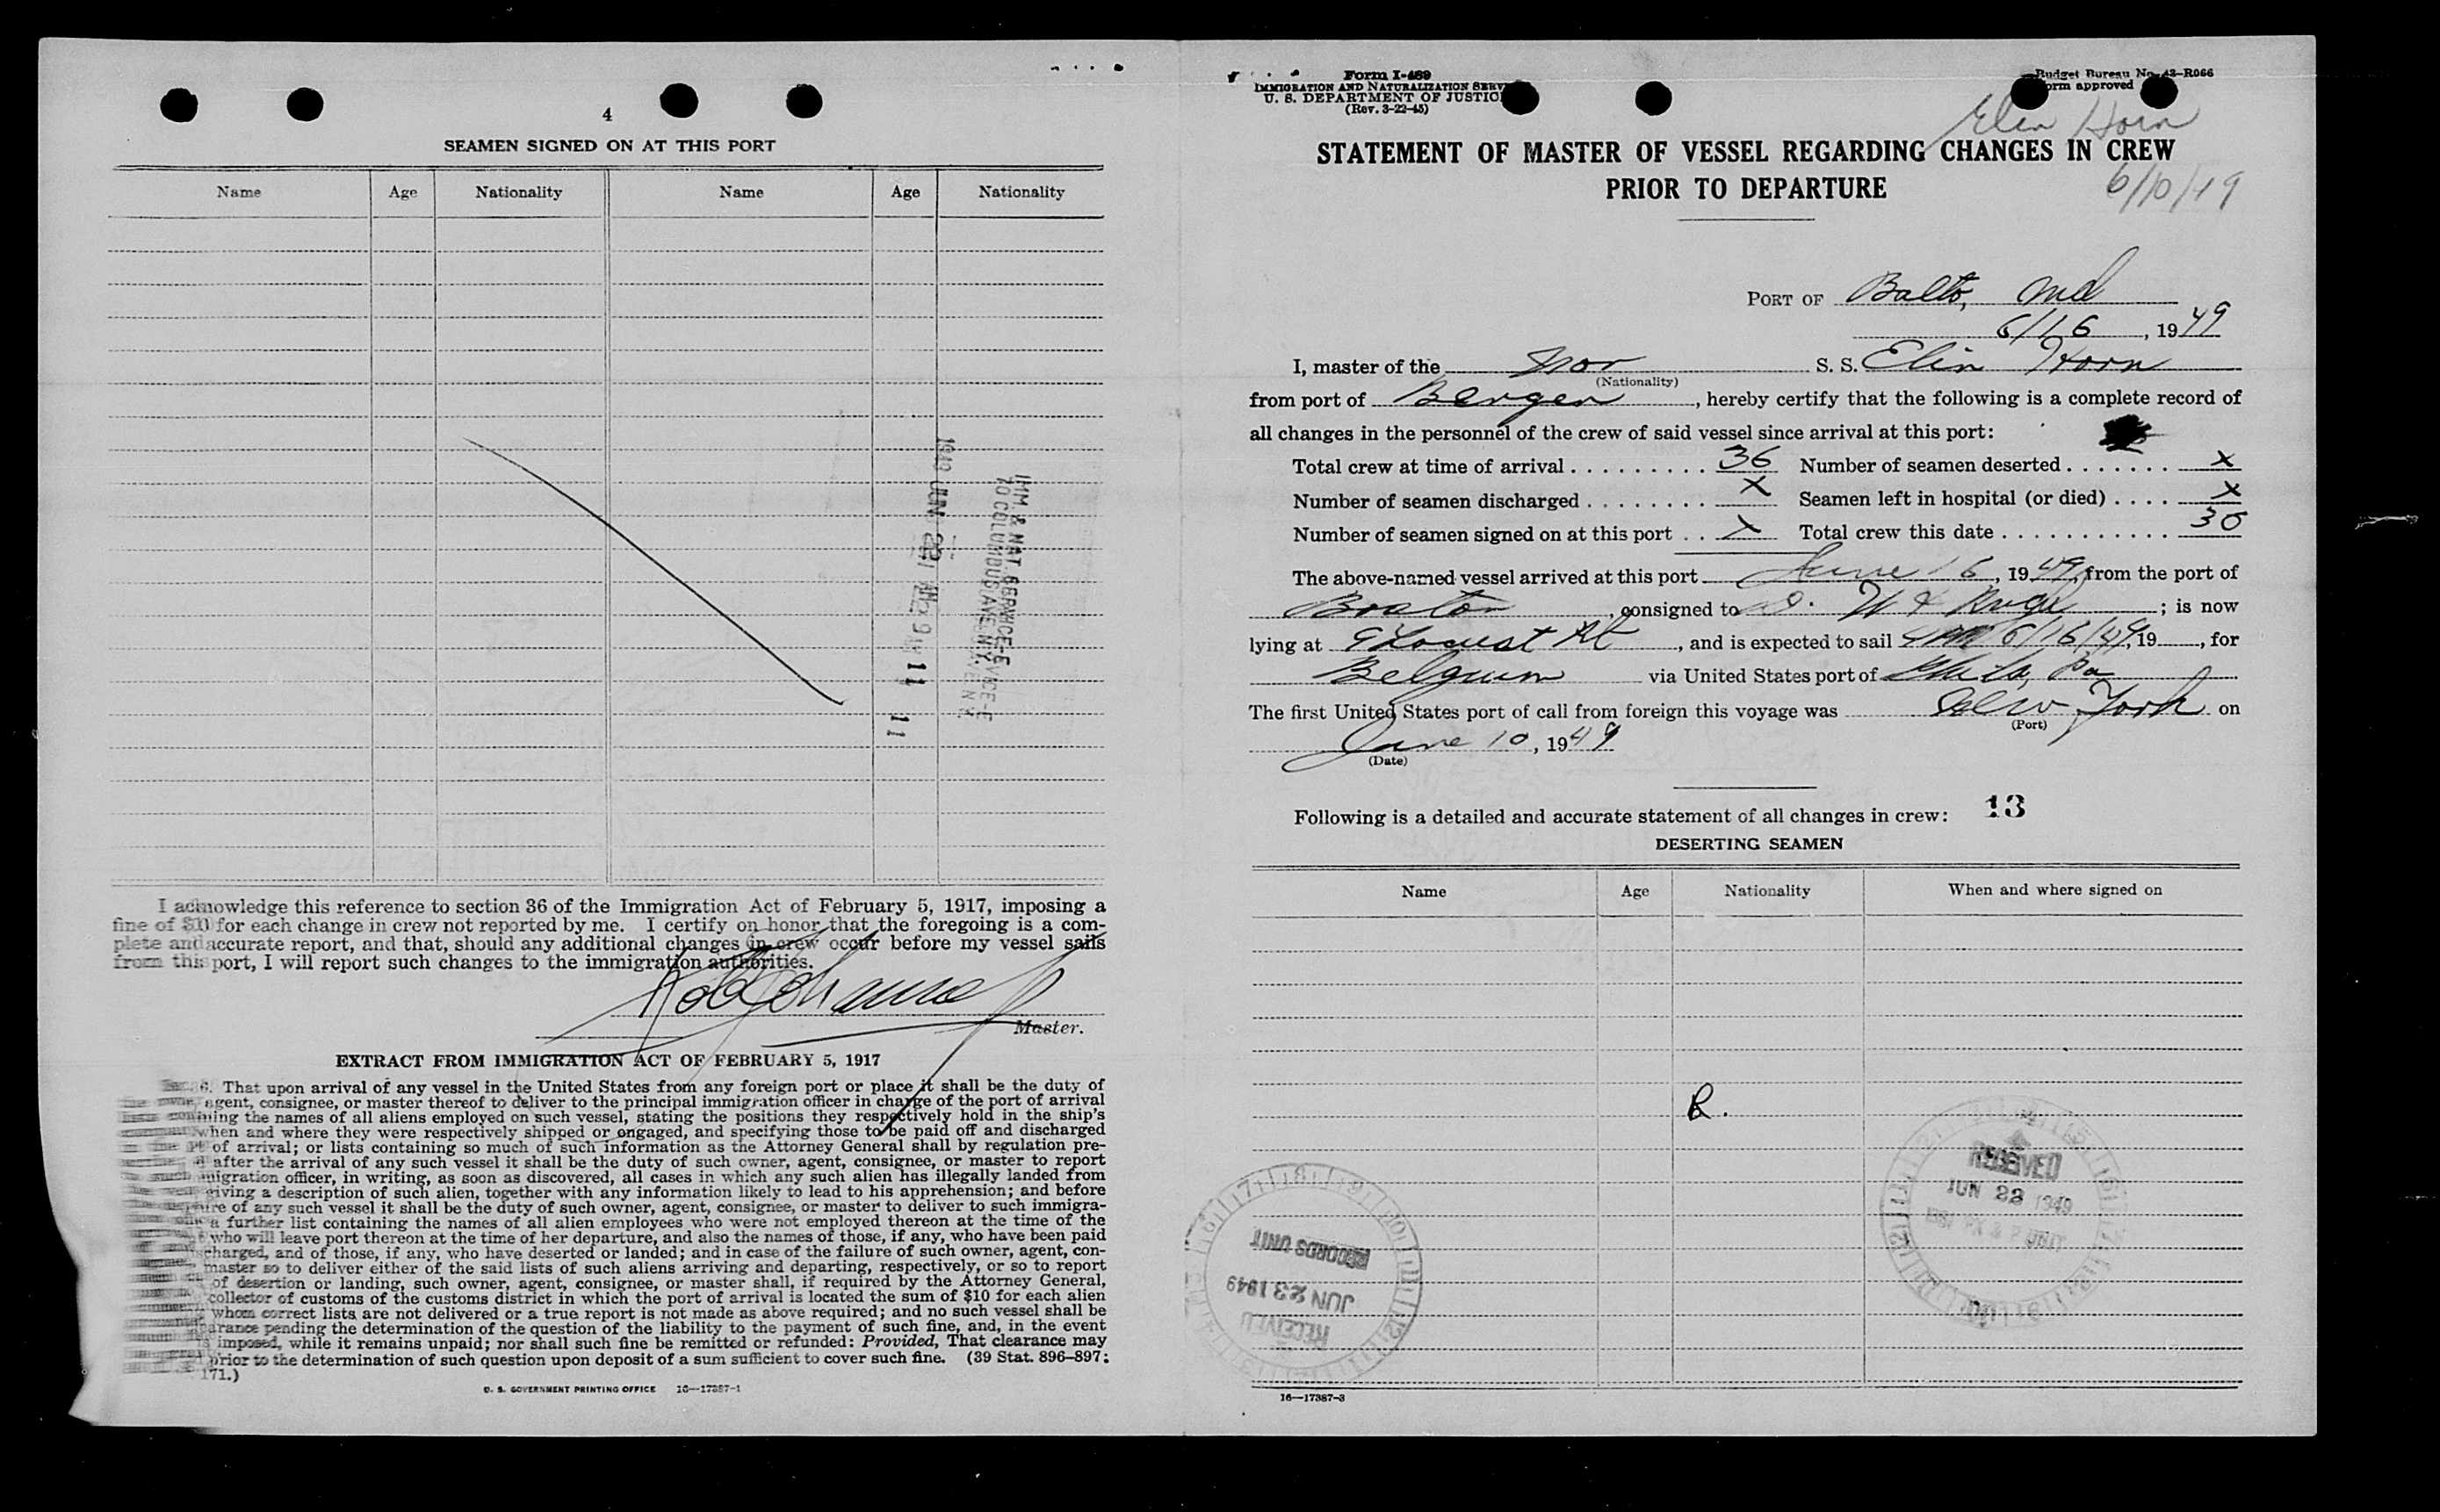 4
SEAMEN SIGNED ON AT THIS PORT
Name Age Nationality Name Age Nationality
IMM. & NAT. SERVICE-E
70 COLUMBUS AVE. N.Y.
I acknowledge this reference to section 36 of the Immigration Act of February 5, 1917, imposing a
fine of $10 for each change in crew not reported by me. I certify on honor that the foregoing is a com-
plete and accurate report, and that, should any additional changes in crew occur before my vessel sails
from this port, I will report such changes to the immigration authorities.
Master.
EXTRACT FROM IMMIGRATION ACT OF FEBRUARY 5, 1917
That upon arrival of any vessel in the United States from any foreign port or place it shall be the duty of
agent, consignee, or master thereof to deliver to the principal immigration officer in charge of the port of arrival
the names of all aliens employed on such vessel, stating the positions they respectively hold in the ship's
when and where they were respectively shipped or engaged, and specifying those to be paid off and discharged
of arrival; or lists containing so much of such information as the Attorney General shall by regulation pre-
after the arrival of any such vessel it shall be the duty of such owner, agent, consignee, or master to report
officer, in writing, as soon as discovered, all cases in which any such alien has illegally landed from
giving a description of such alien, together with any information likely to lead to his apprehension; and before
of any such vessel it shall be the duty of such owner, agent, consignee, or master to deliver to such immigra-
a further list containing the names of all alien employees who were not employed thereon at the time of the
who will leave port thereon at the time of her departure, and also the names of those, if any, who have been paid
and of those, if any, who have deserted or landed; and in case of the failure of such owner, agent, con-
master so to deliver either of the said lists of such aliens arriving and departing, respectively, or so to report
of desertion or landing, such owner, agent, consignee, or master shall, if required by the Attorney General,
collector of customs of the customs district in which the port of arrival is located the sum of $10 for each alien
whom correct lists are not delivered or a true report is not made as above required; and no such vessel shall be
pending the determination of the question of the liability to the payment of such fine, and, in the event
imposed, while it remains unpaid; nor shall such fine be remitted or refunded: Provided, That clearance may
prior to the determination of such question upon deposit of a sum sufficient to cover such fine. (39 Stat. 896–897;
171.)
U. S. GOVERNMENT PRINTING OFFICE 16—17387-1
Form I-489
IMMIGRATION AND NATURALIZATION SERV
U. S. DEPARTMENT OF JUSTIC
(Rev. 3-22-45)
Budget Bureau No. 43-R066
orm approved
Elin Horn
STATEMENT OF MASTER OF VESSEL REGARDING CHANGES IN CREW
PRIOR TO DEPARTURE
6/10/49
PORT OF Balto, Md
6/16, 1949
I, master of the Nor S. S. Elin Horn
(Nationality)
from port of Bergen, hereby certify that the following is a complete record of
all changes in the personnel of the crew of said vessel since arrival at this port:
Total crew at time of arrival . . . . . . . . . . 36 Number of seamen deserted . . . . . . . x
Number of seamen discharged . . . . . . . . x Seamen left in hospital (or died) . . . . x
Number of seamen signed on at this port . . x Total crew this date . . . . . . . . . . . . 36
The above-named vessel arrived at this port June 16, 1949, from the port of
Boston, consigned to ; is now
lying at Locust Pt, and is expected to sail 6/16/49, 19, for
Belgium via United States port of Phila, Pa
The first United States port of call from foreign this voyage was New York on
(Port)
June 10, 1949
(Date)
Following is a detailed and accurate statement of all changes in crew: 13
DESERTING SEAMEN
Name Age Nationality When and where signed on
R.
RECEIVED
JUN 23 1949
RECORDS UNIT
RECEIVED
JUN 23 1949
16—17387-3